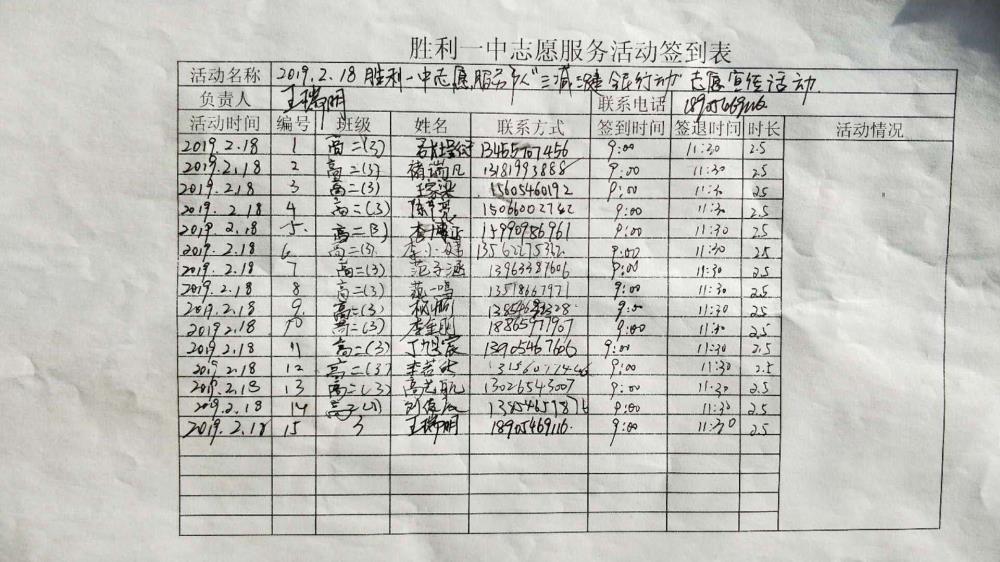 胜利一中志愿服务活动签到表
活动名称 2019.2.18 胜利一中志愿服务队"三减三健 全民行动"志愿宣传活动
负责人 王瑞明 联系电话 18905469116
活动时间 编号 班级 姓名 联系方式 签到时间 签退时间 时长 活动情况
2019.2.18 1 高二(3) 13465707456 9:00 11:30 2.5
2019.2.18 2 高二(3) 褚端凡 13181993888 9:00 11:30 2.5
2019.2.18 3 高二(3) 15605460192 9:00 11:30 2.5
2019.2.18 4 高二(3) 15066002742 9:00 11:30 2.5
2019.2.18 5 高二(3) 9:00 11:30 2.5
2019.2.18 6 高二(3) 9:00 11:30 2.5
2019.2.18 7 高二(3) 范子涵 13963387606 9:00 11:30 2.5
2019.2.18 8 高二(3) 范一鸣 13518667971 9:00 11:30 2.5
2019.2.18 9 高二(3) 9:00 11:30 2.5
2019.2.18 10 高二(3) 李金刚 18865977907 9:00 11:30 2.5
2019.2.18 11 高二(3) 丁旭宸 13905467606 9:00 11:30 2.5
2019.2.18 12 高二(3) 9:00 11:30 2.5
2019.2.18 13 高二(3) 高志航 13026543007 9:00 11:30 2.5
2019.2.18 14 9:00 11:30 2.5
2019.2.18 15 3 王瑞明 18905469116 9:00 11:30 2.5